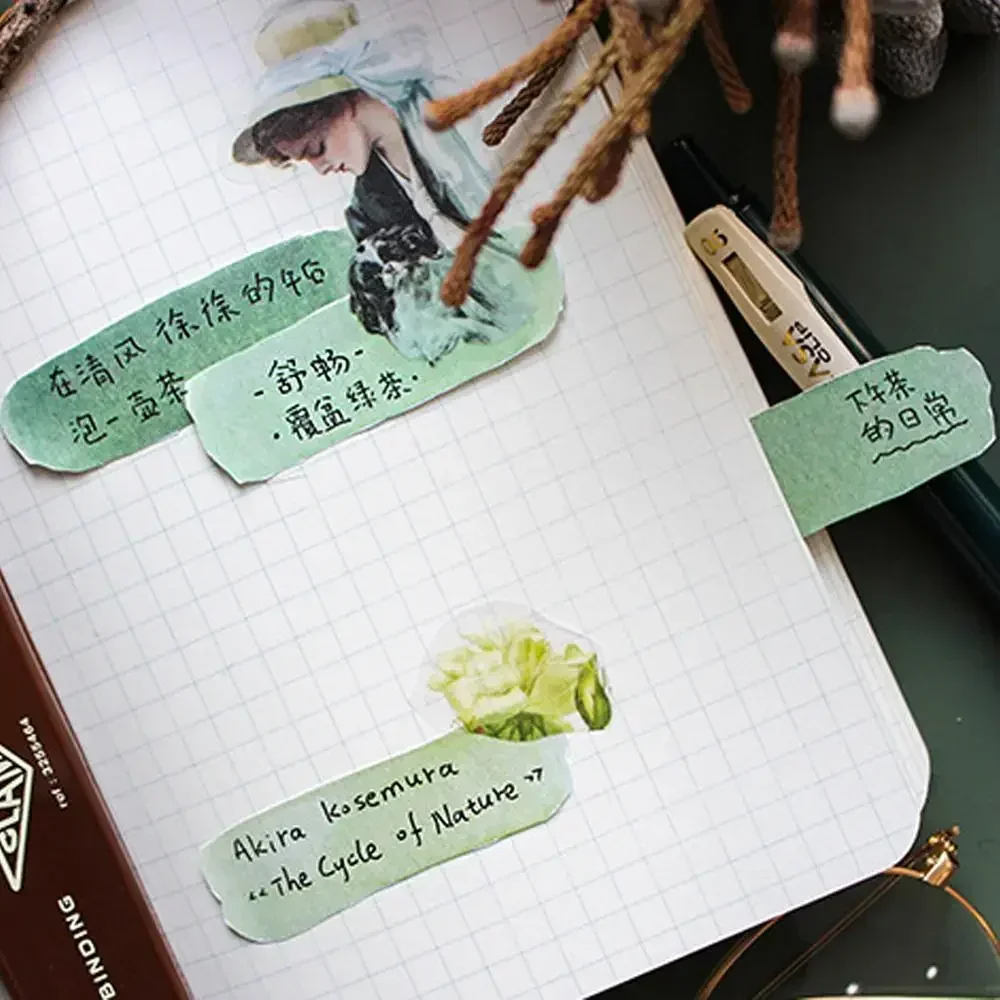 在清风徐徐的午后
泡一壶茶
-舒畅-
·覆盆绿茶·
下午茶
的日常
Akira Kosemura
“The Cycle of Nature”
0.5
ref: 3255464
BINDING